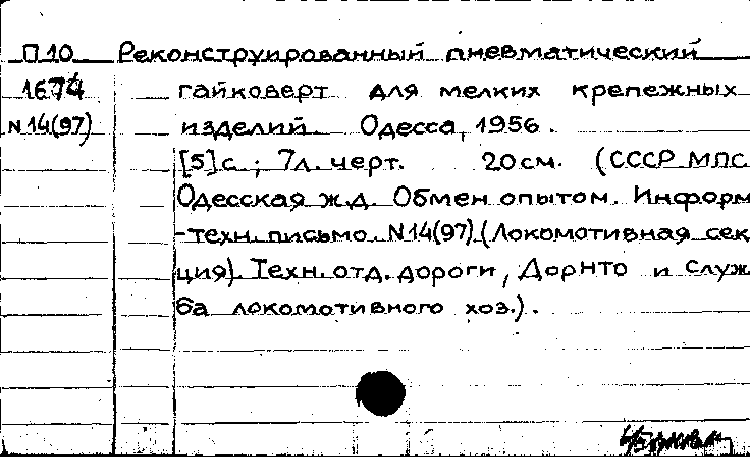 П10 Реконструированный пневматический
1674 гайковерт для мелких крепежных
N14(97) изделий. Одесса, 1956.
[5]с.; 7л. черт. 20см. (СССР МПС
Одесская ж.д. Обмен опытом. Информ
-техн. письмо N14(97) (Локомотивная сек
ция). Техн. отд. дороги, Дорнто и служ
ба локомотивного хоз.).